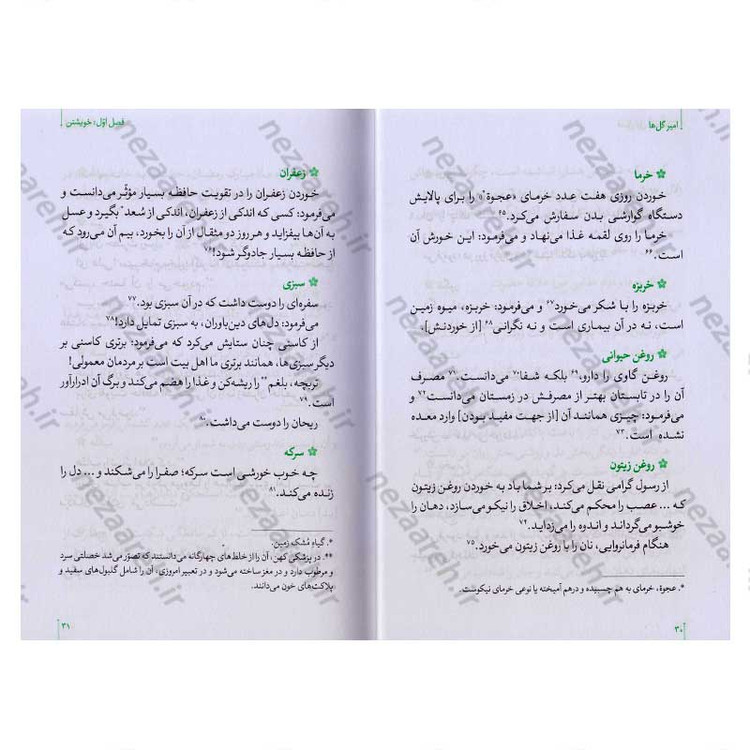 امیر گل‌ها
خرما
خوردن روزی هفت عدد خرمای «عجوة*» را برای پالایش
دستگاه گوارشی بدن سفارش می‌کرد.۶۵
خرما را روی لقمه غذا می‌نهاد و می‌فرمود: این خورش آن
است.۶۶
خربزه
خربزه را با شکر می‌خورد۶۷ و می‌فرمود: خربزه، میوه زمین
است، نه در آن بیماری است و نه نگرانی۶۸ [از خوردنش].
روغن حیوانی
روغن گاوی را دارو،۶۹ بلکه شفا۷۰ می‌دانست.۷۱ مصرف
آن را در تابستان بهتر از مصرفش در زمستان می‌دانست۷۲ و
می‌فرمود: چیزی همانند آن [از جهت مفید بودن] وارد معده
نشده است.۷۳
روغن زیتون
از رسول گرامی نقل می‌کرد: بر شما باد به خوردن روغن زیتون
که ... عصب را محکم می‌کند، اخلاق را نیکو می‌سازد، دهان را
خوشبو می‌گرداند و اندوه را می‌زداید.۷۴
هنگام فرمانروایی، نان را با روغن زیتون می‌خورد.۷۵
*. عجوة، خرمای به هم چسبیده و درهم آمیخته یا نوعی خرمای نیکوست.
۳۰
فصل اوّل: خویشتن
زعفران
خوردن زعفران را در تقویت حافظه بسیار مؤثّر می‌دانست و
می‌فرمود: کسی که اندکی از زعفران، اندکی از سُعد* بگیرد و عسل
به آن‌ها بیفزاید و هر روز دو مثقال از آن را بخورد، بیم آن می‌رود که
از حافظه بسیار جادوگر شود!۷۶
سبزی
سفره‌ای را دوست داشت که در آن سبزی بود.۷۷
می‌فرمود: دل‌های دین‌باوران، به سبزی تمایل دارد!۷۸
از کاسنی چنان ستایش می‌کرد که می‌فرمود: برتری کاسنی بر
دیگر سبزی‌ها، همانند برتری ما اهل بیت است بر مردمان معمولی!
تربچه، بلغم** را ریشه‌کن و غذا را هضم می‌کند و برگ آن ادرارآور
است.۷۹
ریحان را دوست می‌داشت.۸۰
سرکه
چه خوب خورشی است سرکه؛ صفرا را می‌شکند و ... دل را
زنده می‌کند.۸۱
*. گیاهِ مُشک زمین.
**. در پزشکی کهن، آن را از خلط‌های چهارگانه می‌دانستند که تصوّر می‌شد خصلتی سرد
و مرطوب دارد و در مغز ساخته می‌شود و در تعبیر امروزی، آن را شامل گلبول‌های سفید و
پلاکت‌های خون می‌دانند.
۳۱
nezaareh.ir